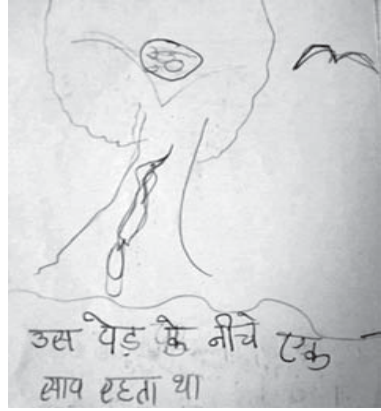 उस पेड़ के नीचे एक
साप रहता था